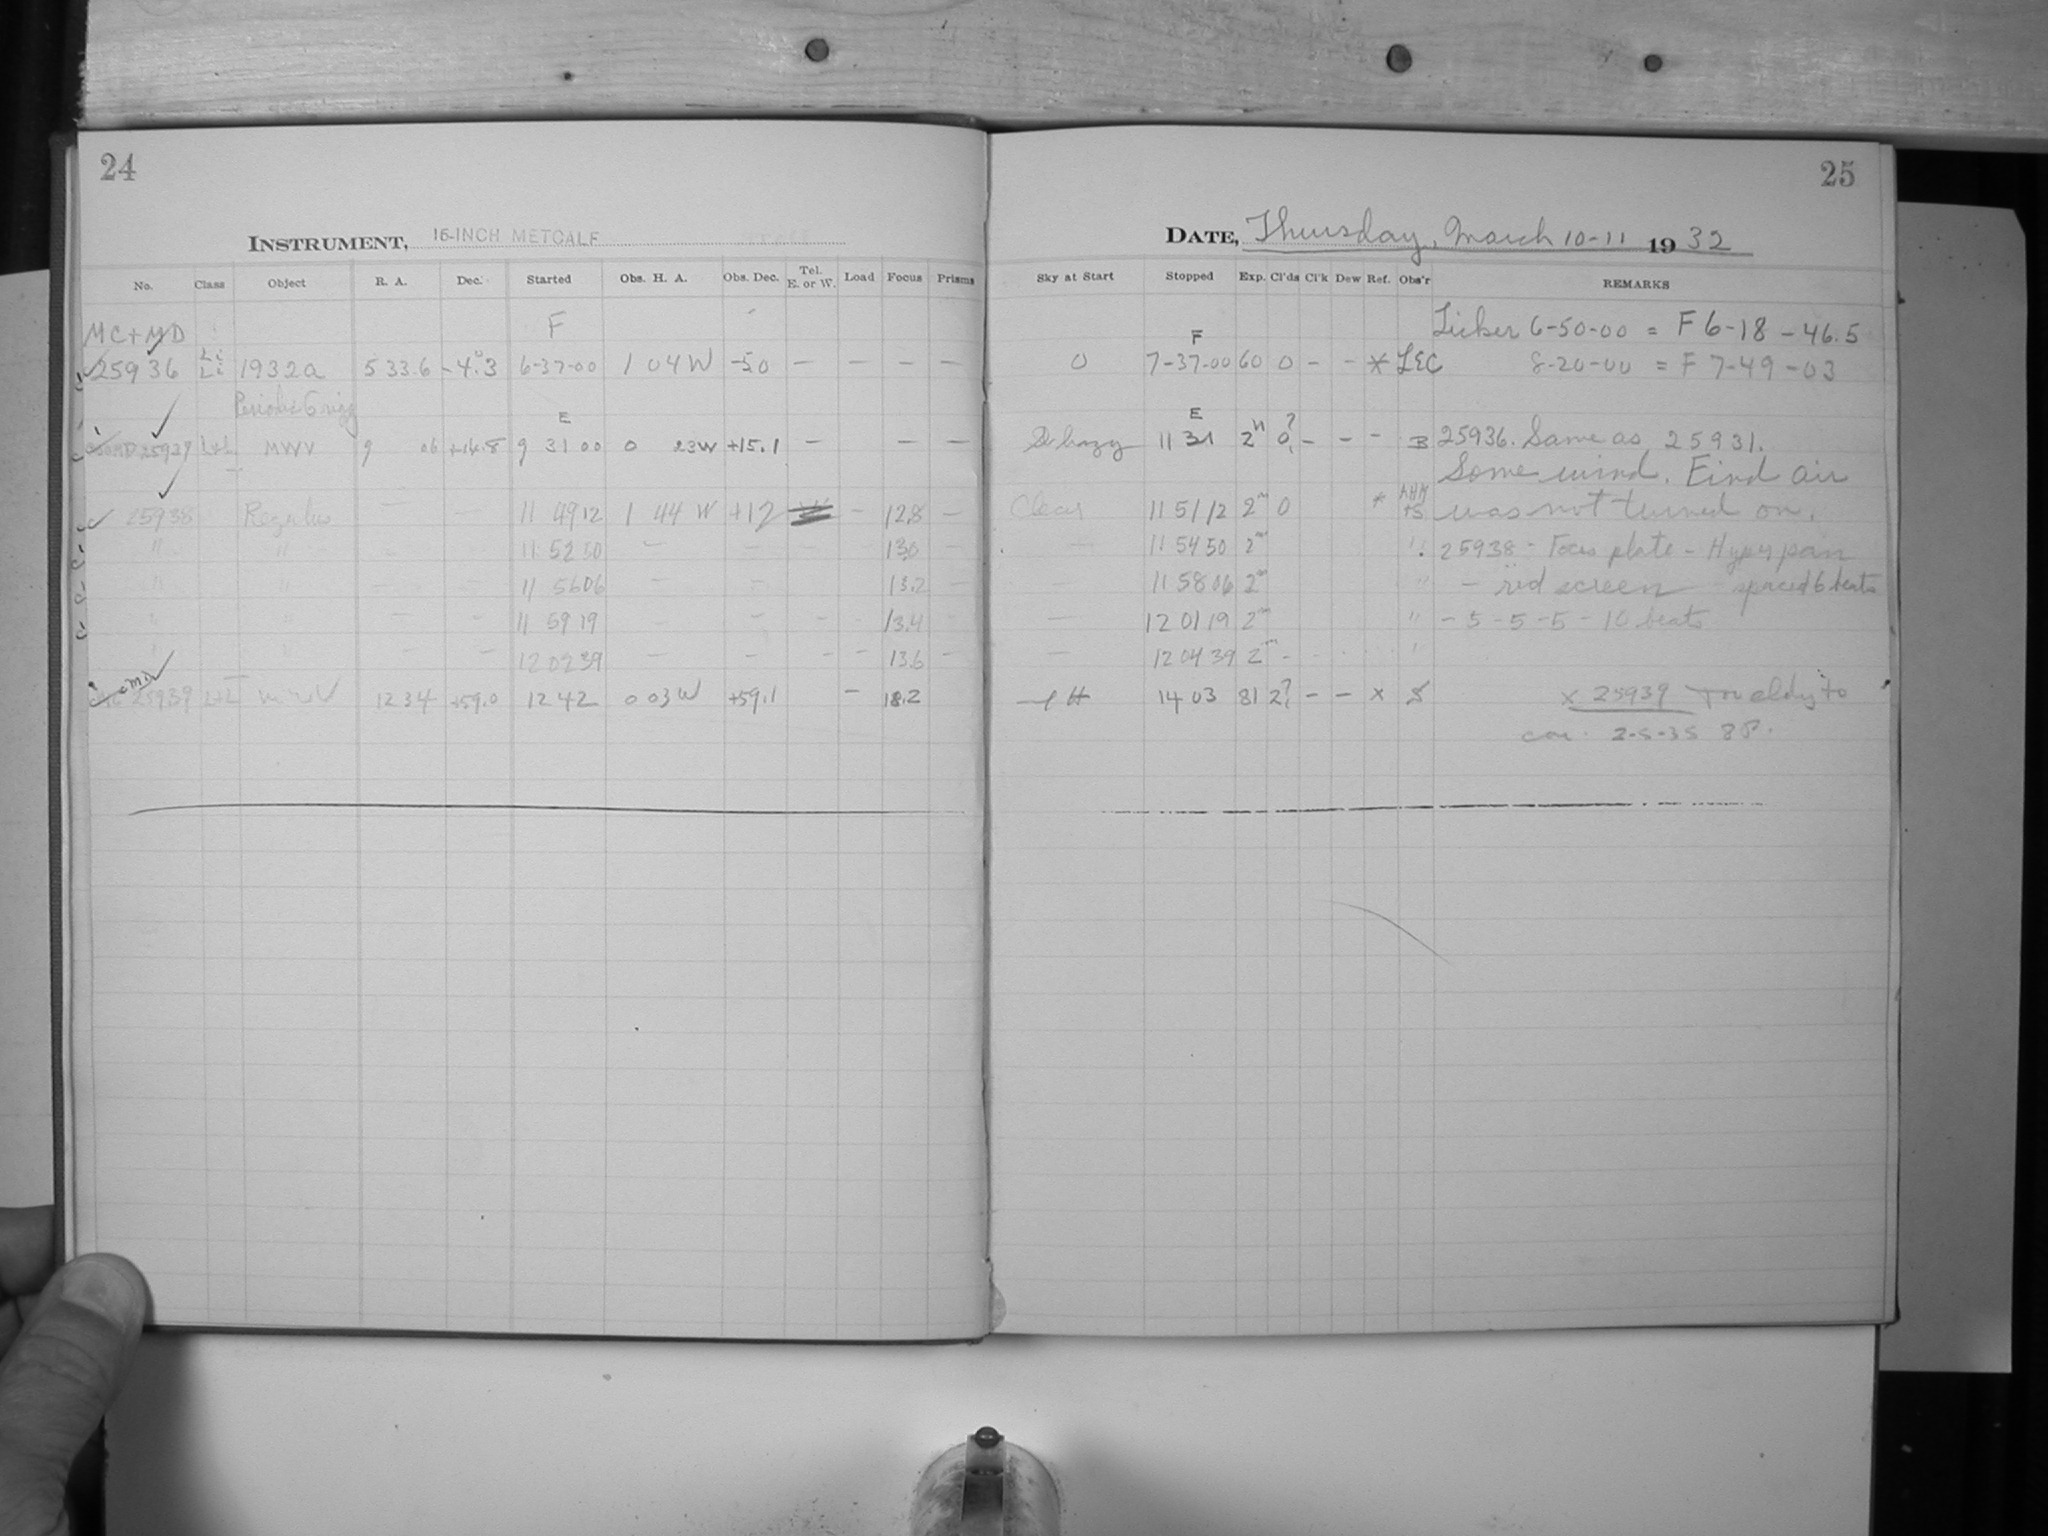 24
INSTRUMENT, 16-INCH METCALF
No. Class Object R. A. Dec. Started Obs. H. A. Obs. Dec. Tel. E. or W. Load Focus Prisms
MC+MD F
25936 Li Li 1932a 5 33.6 -4.3 6-37-00 1 04 W -5.0 — — — —
Periodic Grigg E
MD 25937 L+L MWV 9 06 +14.8 9 31 00 0 23W +15.1 — — —
25938 Regulus — — 11 49 12 1 44 W +12 — 12.8 —
" " - - 11 52 50 — — — 13.0 —
" " — — 11 56 06 — — 13.2 —
" " — — 11 59 19 — — — - 13.4 —
" " — — 12 02 39 — — — - 13.6 —
25939 L+L 12 34 +59.0 12 42 0 03 W +59.1 — 18.2
25
DATE, Thursday, March 10-11 1932
Sky at Start Stopped Exp. Cl'ds Cl'k Dew Ref. Obs'r REMARKS
F Ticker 6-50-00 = F 6-18-46.5
0 7-37-00 60 0 - - * LEC 8-20-00 = F 7-49-03
E
hazy 11 31 2h 0? - - - B 25936. Same as 25931.
Some wind. Find air
Clear 11 51 12 2m 0 * was not turned on.
11 54 50 2m " 25938 - Focus plate - Hyper pan
— 11 58 06 2m " - red screen - spaced 6 beats
— 12 01 19 2m " - 5 - 5 - 5 - 10 beats
— 12 04 39 2m - "
14 03 81 2? - - x S x 25939
2-5-35